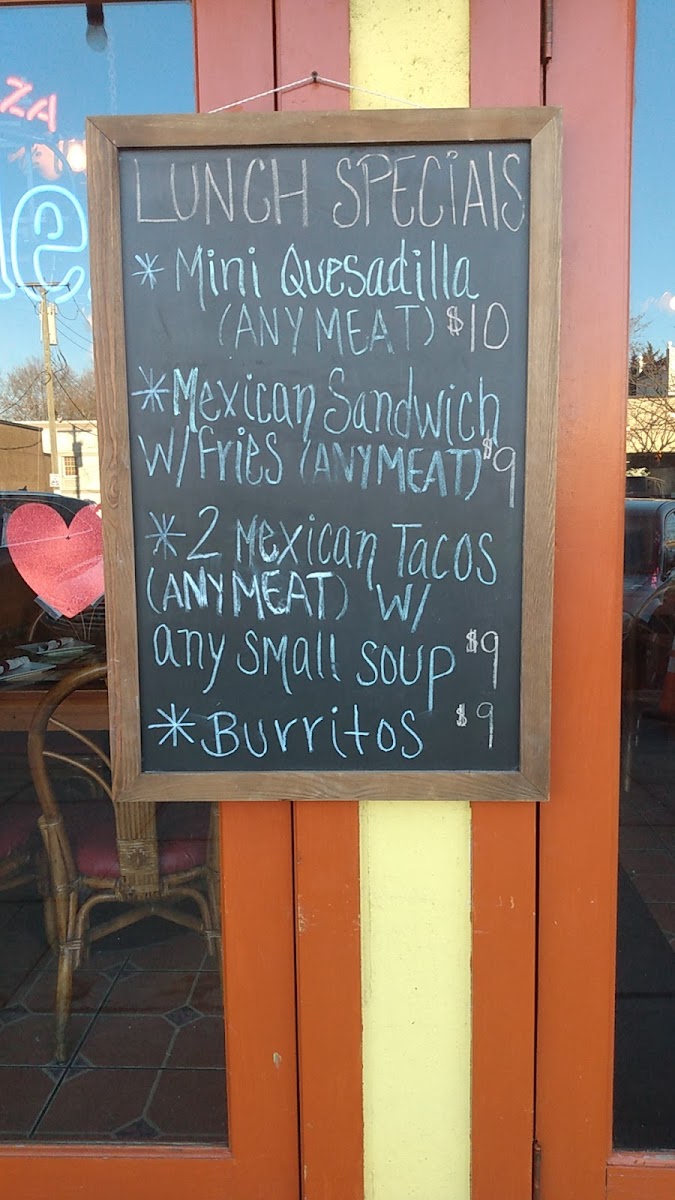 ZA
le
LUNCH SPECIALS
* Mini Quesadilla
(ANY MEAT) $10
* Mexican Sandwich
W/fries (ANY MEAT) $9
* 2 Mexican Tacos
(ANY MEAT) W/
any small soup $9
* Burritos $9